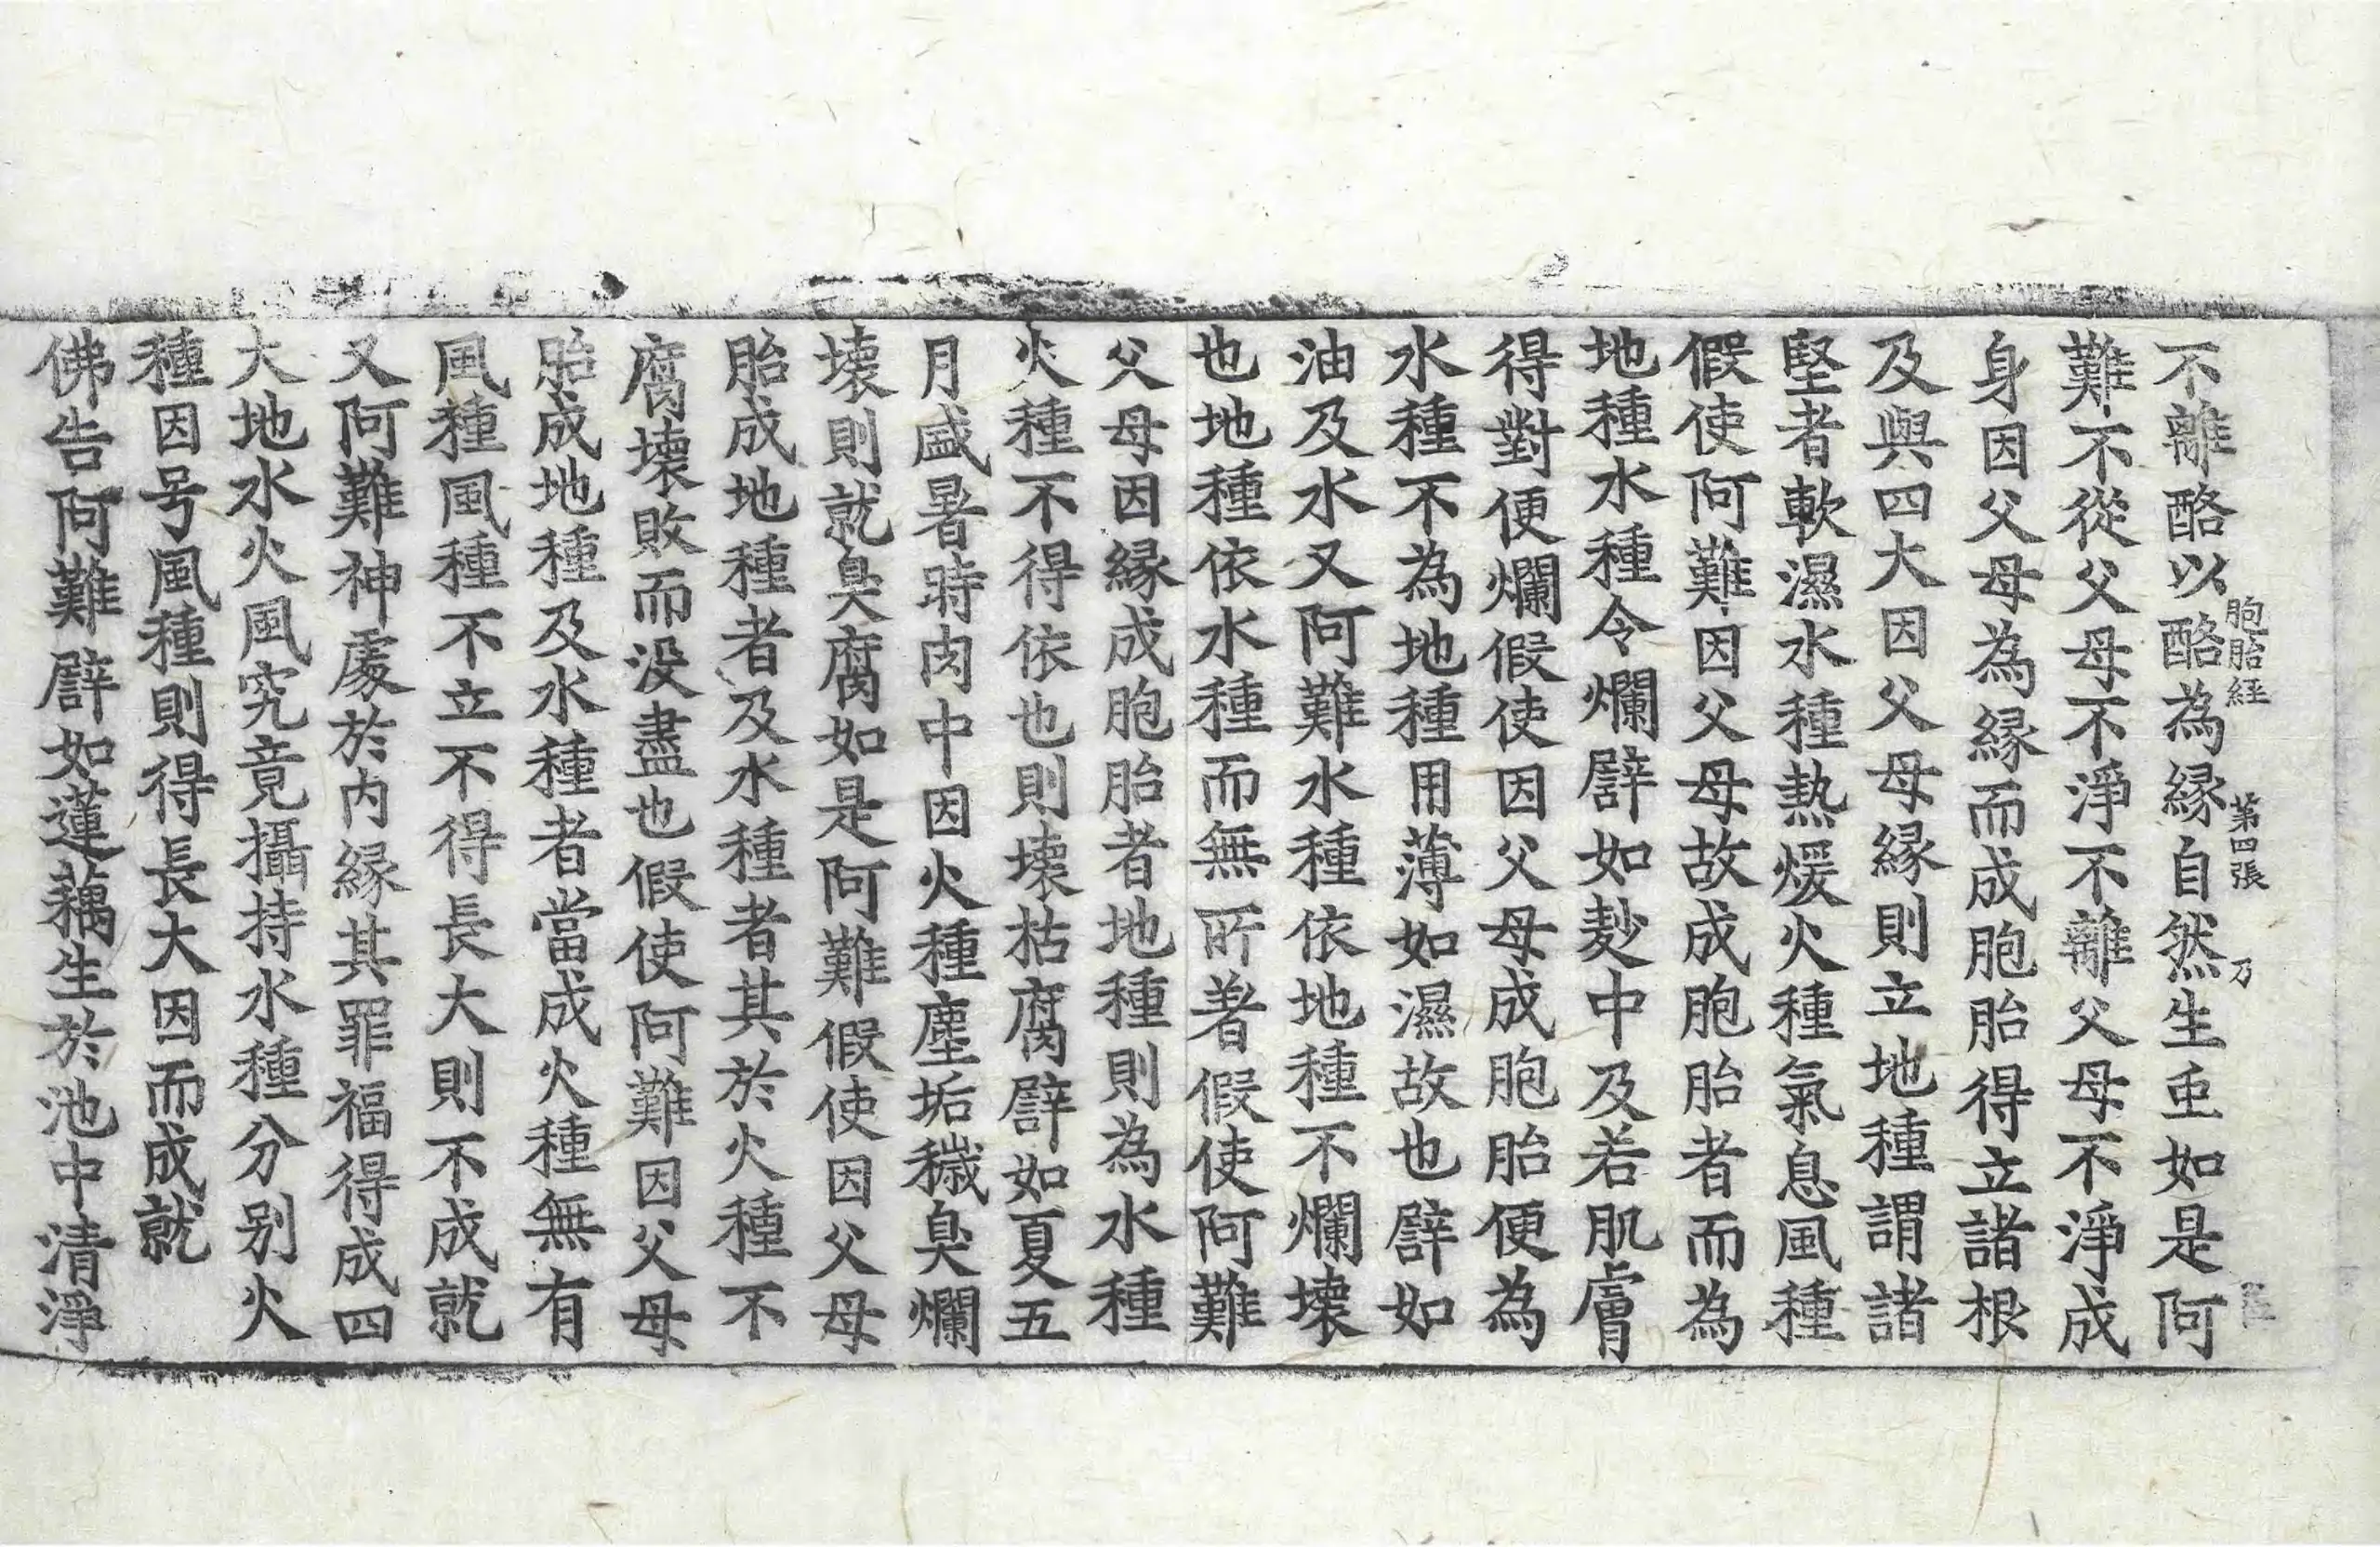 胞胎經 第四張 乃
不離酪以酪為緣自然生䖝如是阿
難不從父母不淨不離父母不淨成
身因父母為緣而成胞胎得立諸根
及與四大因父母緣則立地種謂諸
堅者軟濕水種熱煖火種氣息風種
假使阿難因父母故成胞胎者而為
地種水種令爛譬如麨中及若肌膚
得對便爛假使因父母成胞胎便為
水種不為地種用薄如濕故也譬如
油及水又阿難水種依地種不爛壞
也地種依水種而無所著假使阿難
父母因緣成胞胎者地種則為水種
火種不得依也則壞枯腐譬如夏五
月盛暑時肉中因火種塵垢穢臭爛
壞則就臭腐如是阿難假使因父母
胎成地種者及水種者其於火種不
腐壞敗而没盡也假使阿難因父母
胎成地種及水種者當成火種無有
風種風種不立不得長大則不成就
又阿難神處於内緣其罪福得成四
大地水火風究竟攝持水種分别火
種因号風種則得長大因而成就
佛告阿難譬如蓮藕生於池中清淨